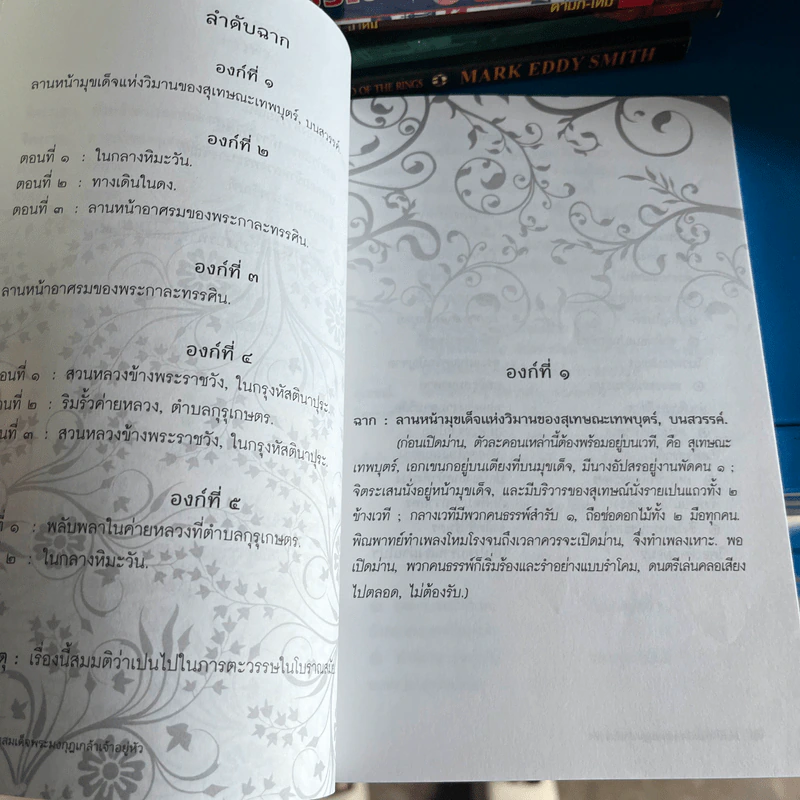 MARK EDDY SMITH
OF THE RINGS
ลำดับฉาก
องก์ที่ ๑
ลานหน้ามุขเด็จแห่งวิมานของสุเทษณะเทพบุตร์, บนสวรรค์.
องก์ที่ ๒
ตอนที่ ๑ : ในกลางหิมะวัน.
ตอนที่ ๒ : ทางเดินในดง.
ตอนที่ ๓ : ลานหน้าอาศรมของพระกาละทรรศิน.
องก์ที่ ๓
ลานหน้าอาศรมของพระกาละทรรศิน.
องก์ที่ ๔
อนที่ ๑ : สวนหลวงข้างพระราชวัง, ในกรุงหัสตินาปุระ.
นที่ ๒ : ริมรั้วค่ายหลวง, ตำบลกุรุเกษตร.
นที่ ๓ : สวนหลวงข้างพระราชวัง, ในกรุงหัสตินาปุระ.
องก์ที่ ๕
ที่ ๑ : พลับพลาในค่ายหลวงที่ตำบลกุรุเกษตร.
๒ : ในกลางหิมะวัน.
ตุ : เรื่องนี้สมมติว่าเปนไปในภารตะวรรษในโบราณสมัย
สมเด็จพระมงกุฎเกล้าเจ้าอยู่หัว
องก์ที่ ๑
ฉาก : ลานหน้ามุขเด็จแห่งวิมานของสุเทษณะเทพบุตร์, บนสวรรค์.
(ก่อนเปิดม่าน, ตัวละคอนเหล่านี้ต้องพร้อมอยู่บนเวที, คือ สุเทษณะ
เทพบุตร์, เอกเขนกอยู่บนเตียงที่บนมุขเด็จ, มีนางอัปสรอยู่งานพัดคน ๑ ;
จิตระเสนนั่งอยู่หน้ามุขเด็จ, และมีบริวารของสุเทษณ์นั่งรายเปนแถวทั้ง ๒
ข้างเวที ; กลางเวทีมีพวกคนธรรพ์สำรับ ๑, ถือช่อดอกไม้ทั้ง ๒ มือทุกคน.
พิณพาทย์ทำเพลงโหมโรงจนถึงเวลาควรจะเปิดม่าน, จึ่งทำเพลงเหาะ. พอ
เปิดม่าน, พวกคนธรรพ์ก็เริ่มร้องและรำอย่างแบบรำโคม, ดนตรีเล่นคลอเสียง
ไปตลอด, ไม่ต้องรับ.)